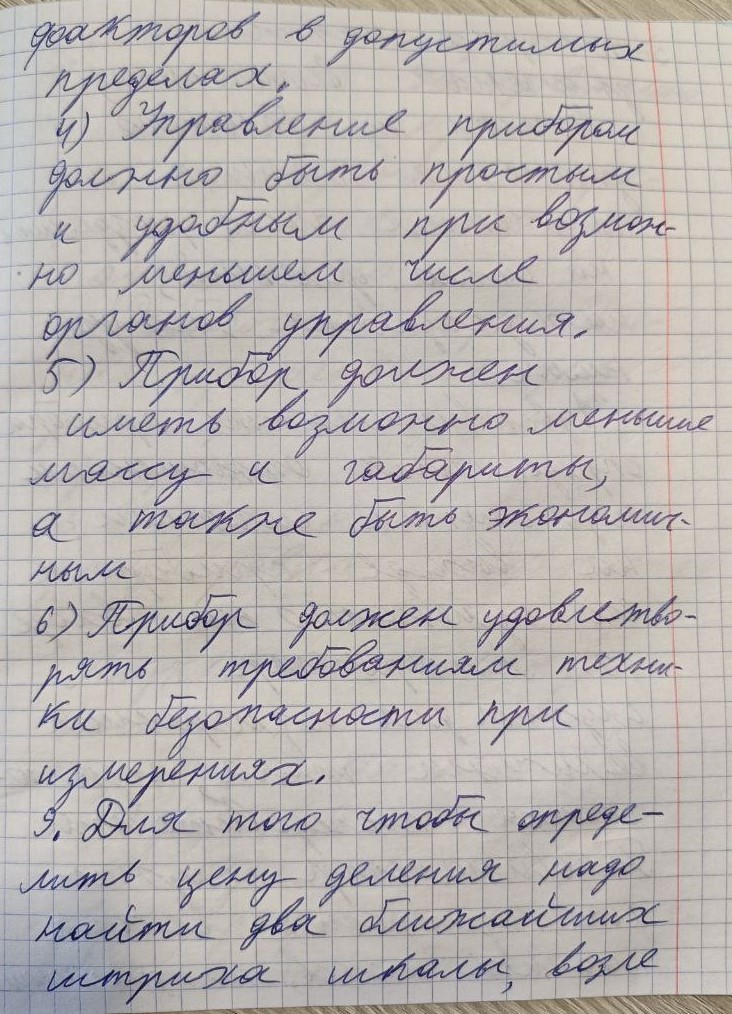 факторов в допустимых
пределах.
4) Управление прибором
должно быть простым
и удобным при возмож-
но меньшем числе
органов управления.
5) Прибор должен
иметь возможно меньшие
массу и габариты,
а также быть экономич-
ным
6) Прибор должен удовлетво-
рять требованиям техни-
ки безопасности при
измерениях.
9. Для того чтобы опреде-
лить цену деления надо
найти два ближайших
штриха шкалы, возле